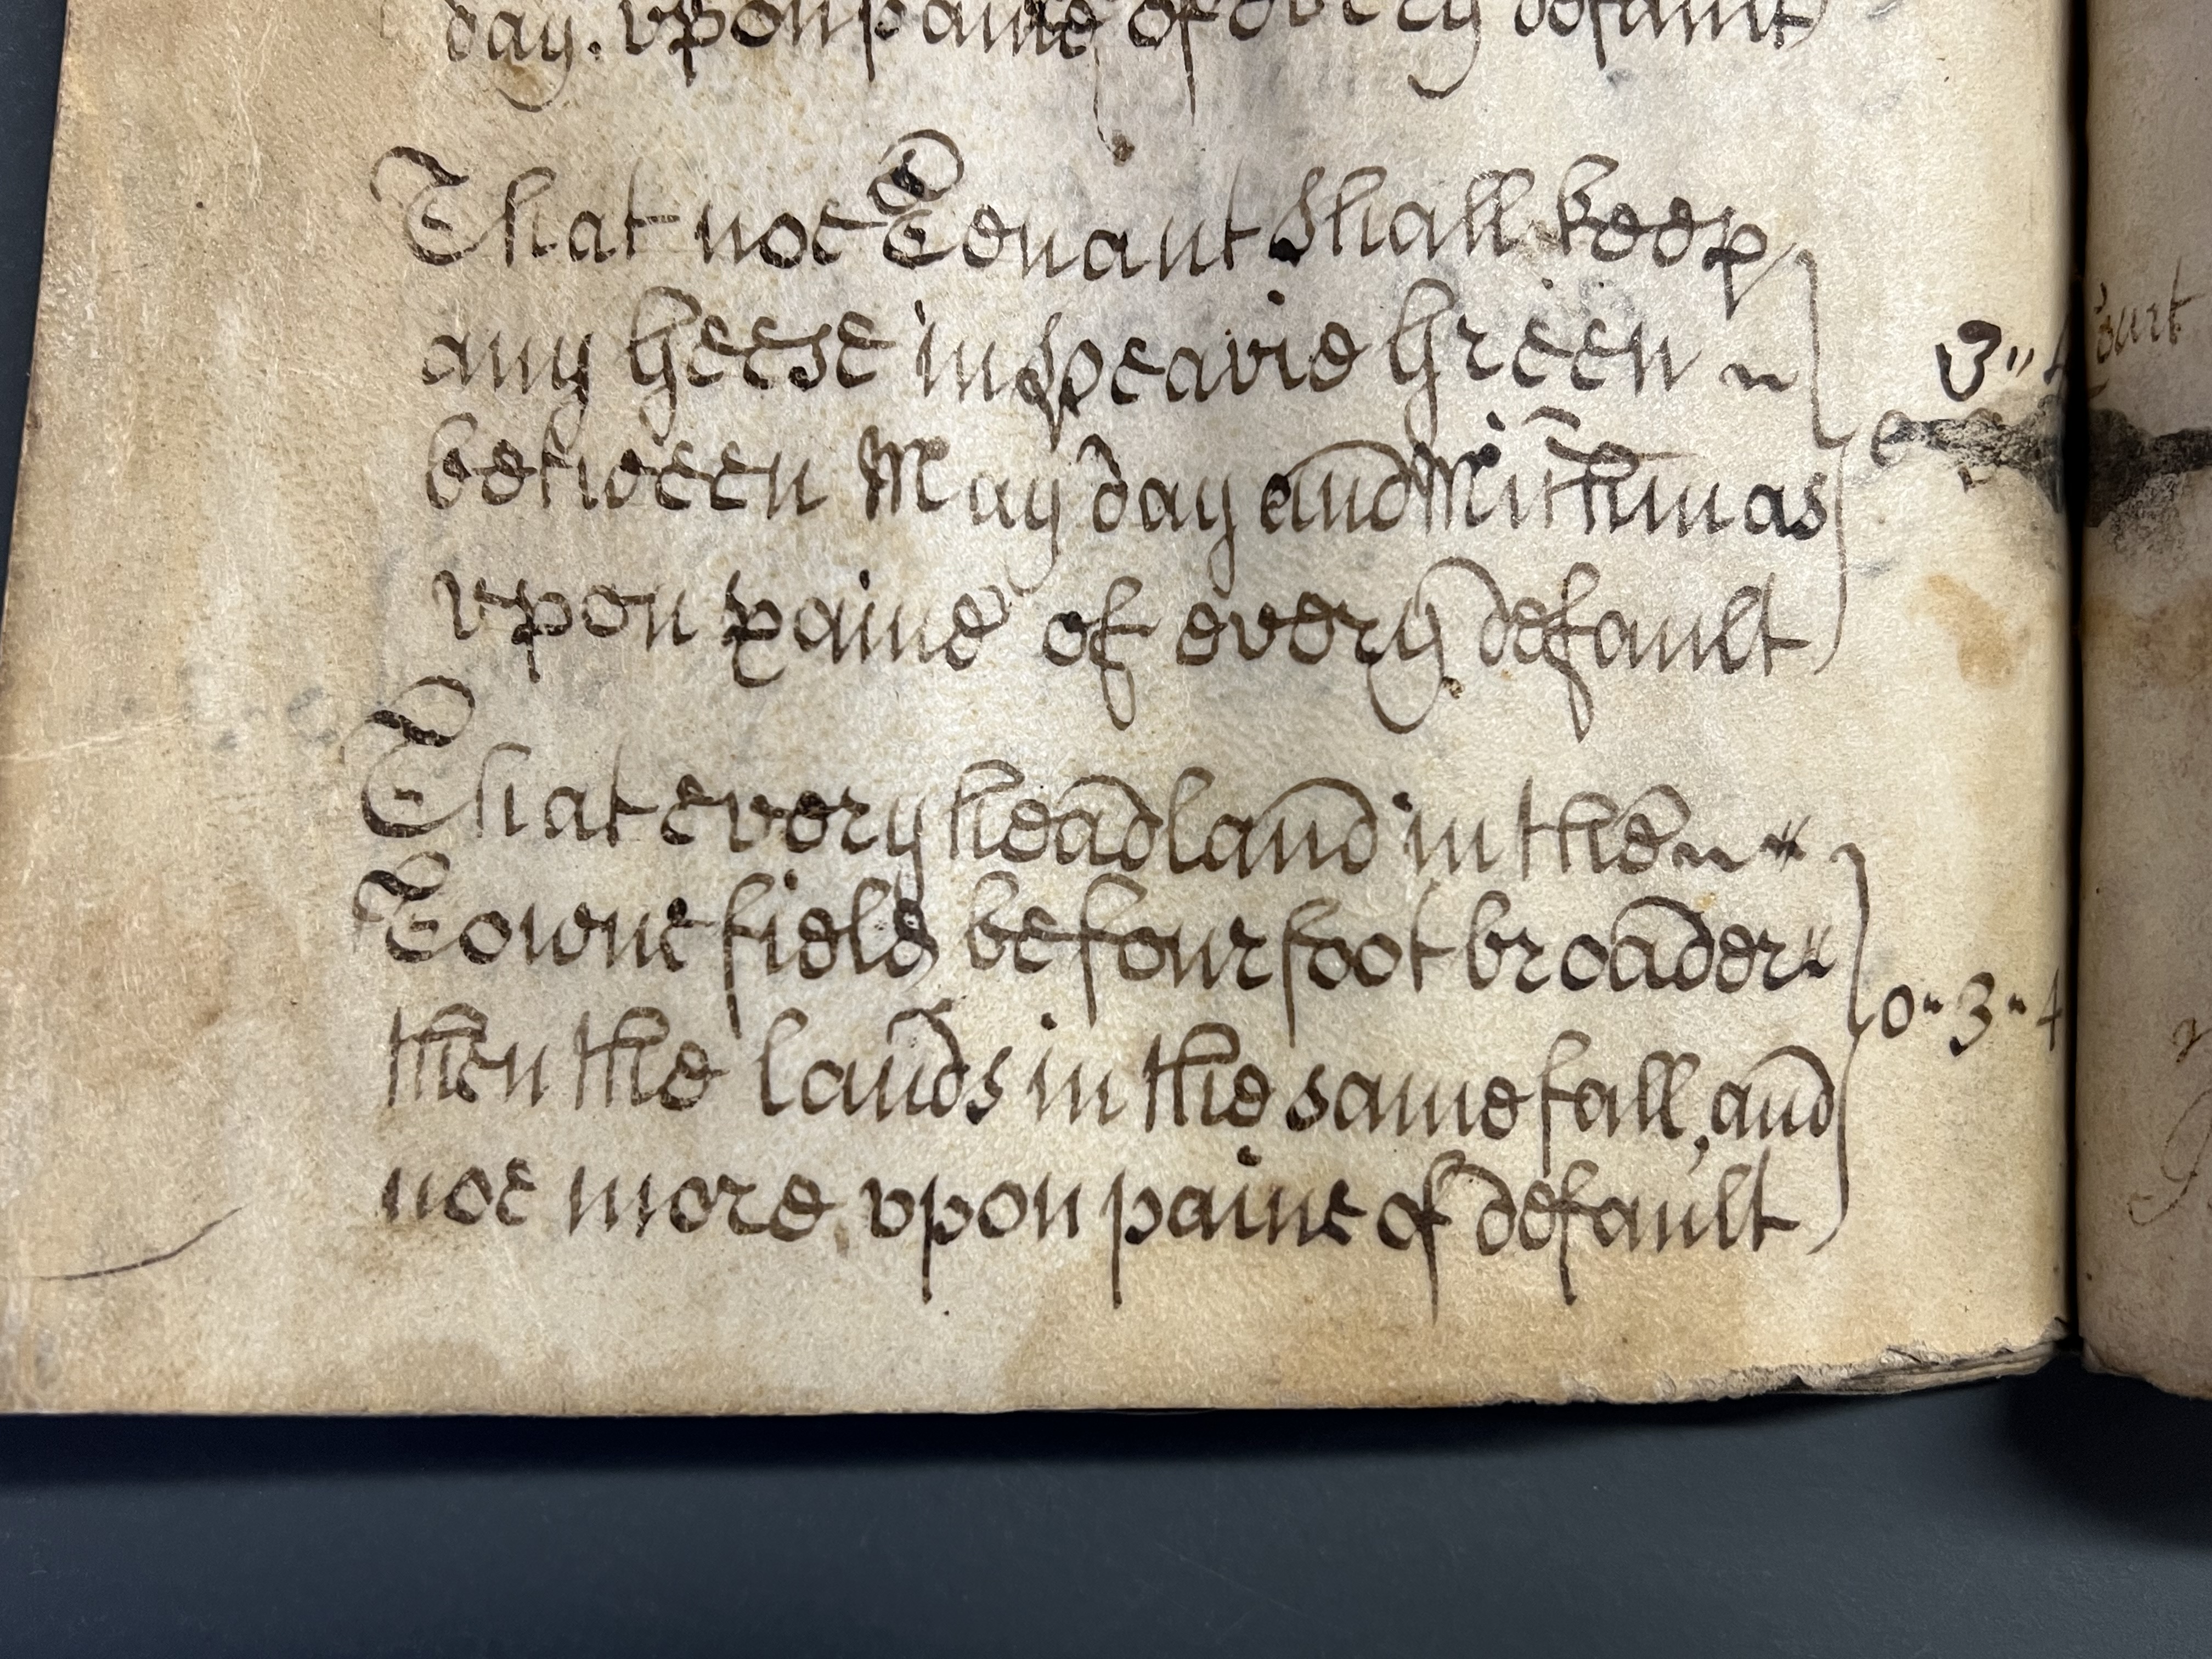 day. vpon paine of every default
That noe Tenant Shall keep
any Geese in Spearie Green
between May day and Mithmas
vpon paine of every default
3"
That every headland in the
Towne field be four foot broader
then the lands in the same fall, and
0" 3" 4
noe more vpon paine of default
ourt